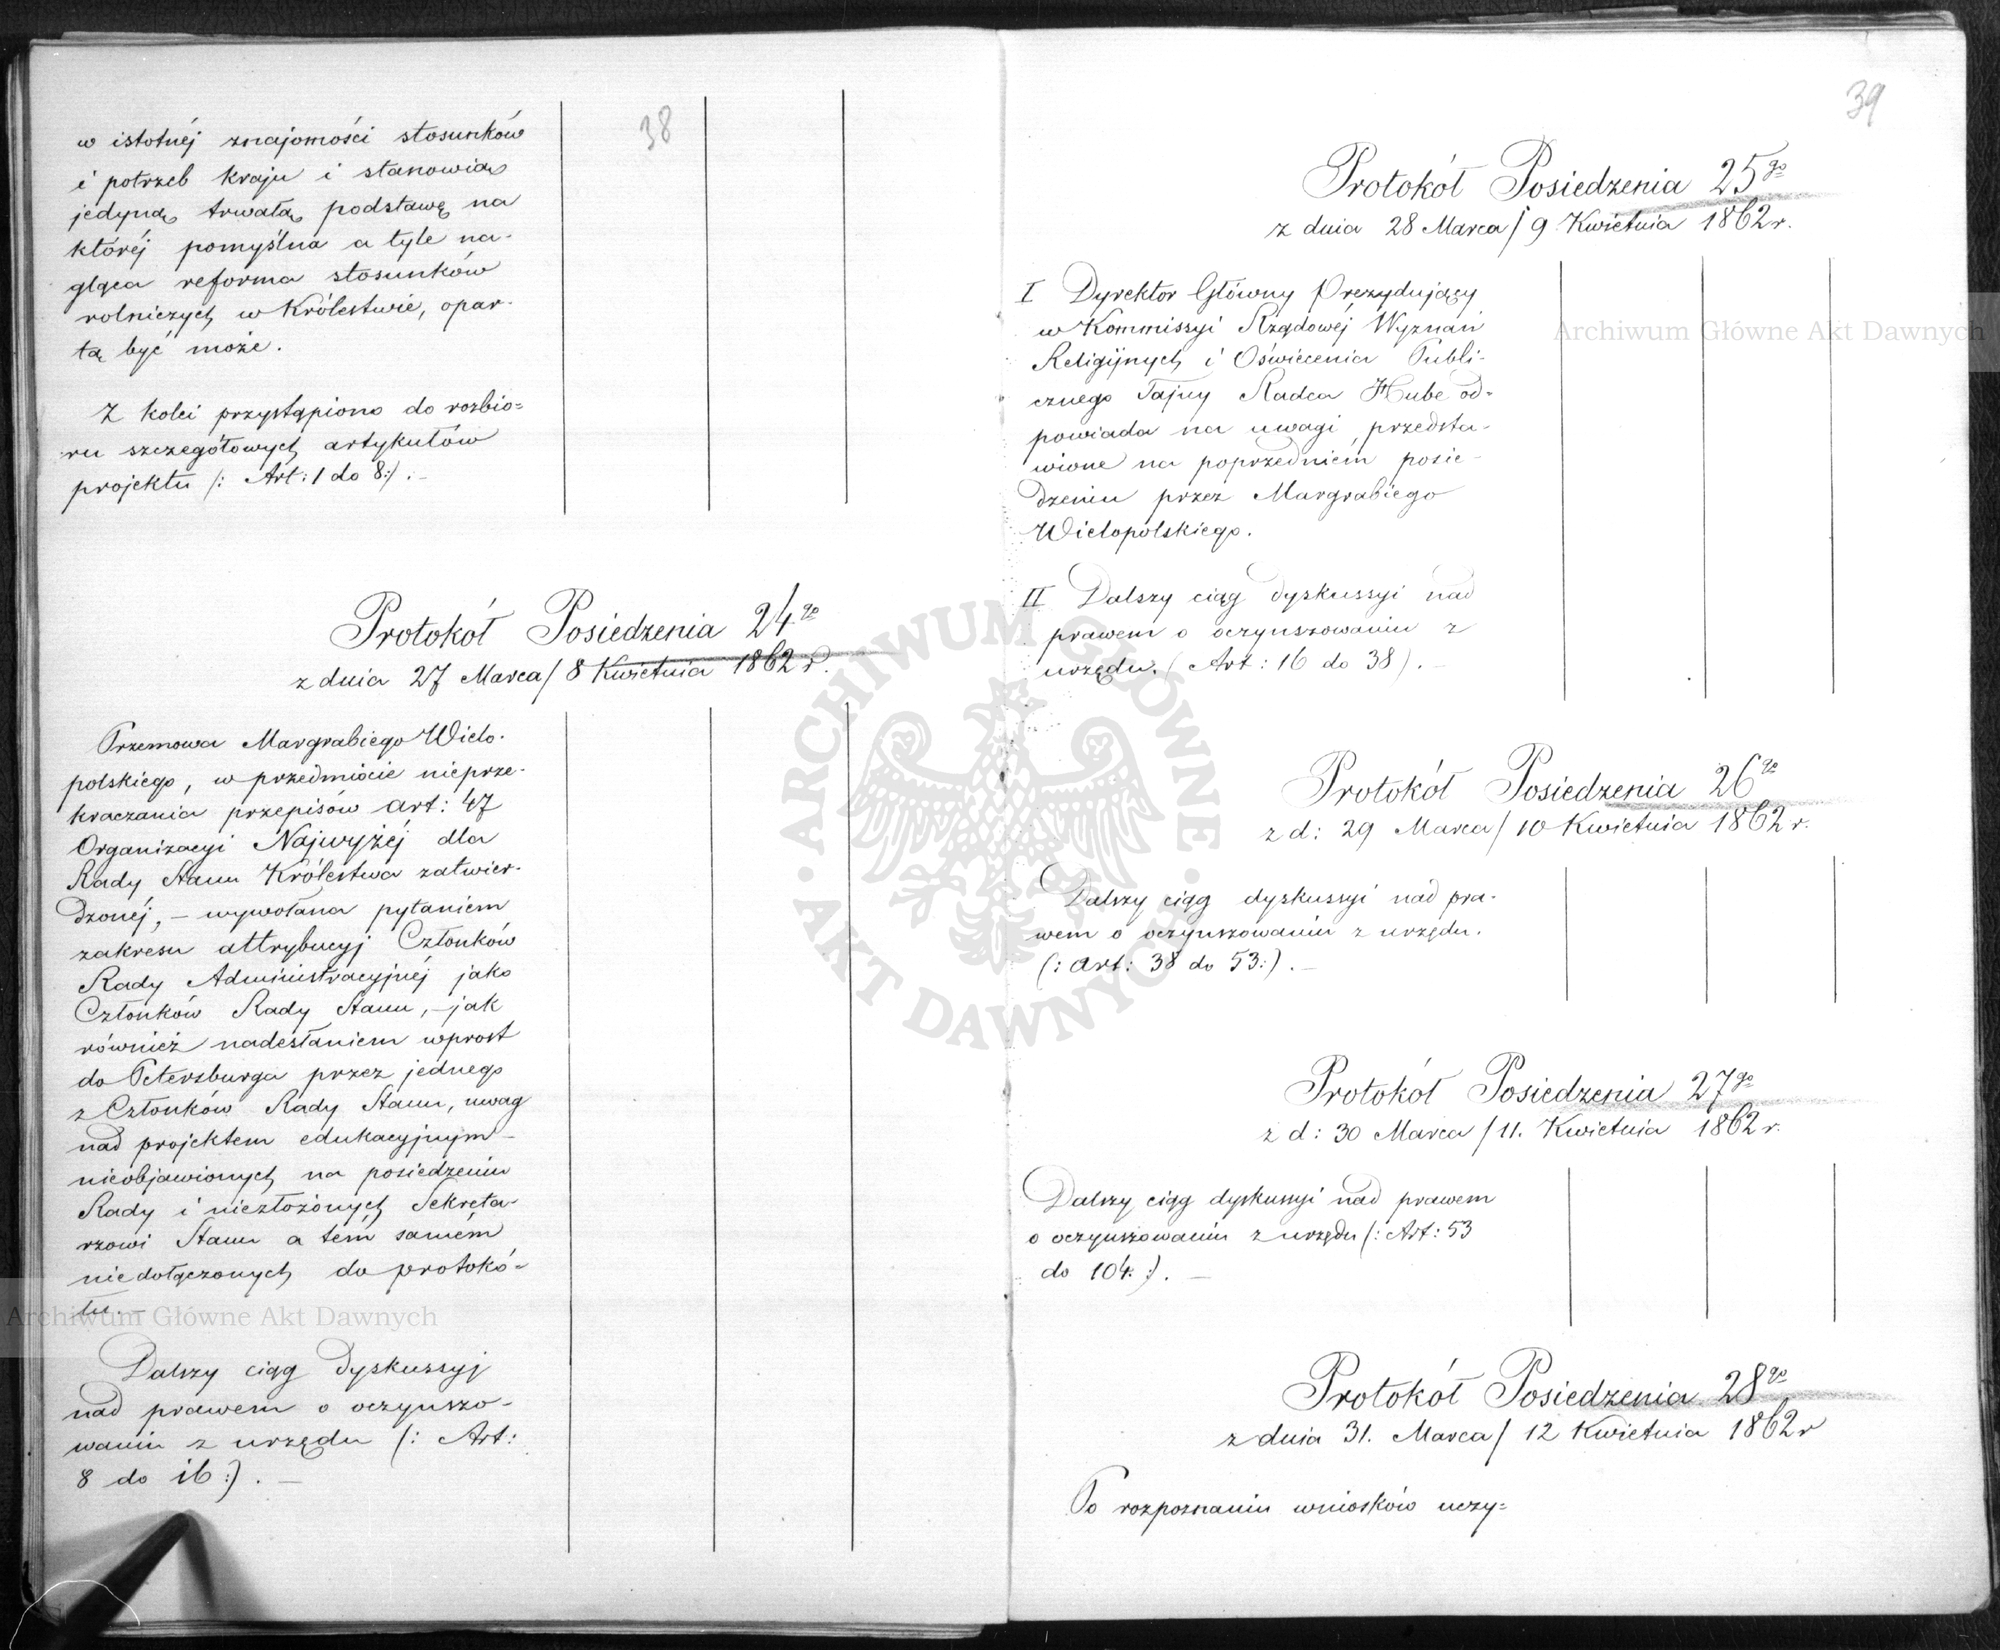 38
w istotnéj znajomości stosunków
i potrzeb kraju i stanowią
jedyną trwałą podstawę na
któréj pomyślna a tyle na-
gląca reforma stosunków
rolniczych w Królestwie, opar-
tą być może.
Z kolei przystąpiono do rozbio=
ru szczegółowych artykułów
projektu (: Art: 1 do 8:). –
Protokół Posiedzenia 24go
z dnia 27 Marca / 8 Kwietnia 1862 r.
Przemowa Margrabiego Wielo-
polskiego, w przedmiocie nieprze-
kraczania przepisów art: 47
Organizacyi Najwyżéj dla
Rady Stanu Królestwa zatwier-
dzonéj, – wywołana pytaniem
zakresu attrybucyj Członków
Rady Administracyjnéj jako
Członków Rady Stanu, – jak
również nadesłaniem wprost
do Petersburga przez jednego
z Członków Rady Stanu, uwag
nad projektem edukacyjnym –
nieobjawionych na posiedzeniu
Rady i niezłożonych Sekreta-
rzowi Stanu a tém samém
niedołączonych do protokó-
łu. –
Dalszy ciąg dyskussyj
nad prawem o oczynszo-
waniu z urzędu (: Art:
8 do 16:). –
39
Protokół Posiedzenia 25go
z dnia 28 Marca / 9 Kwietnia 1862 r.
I Dyrektor Główny Prezydujący
w Kommissyi Rządowéj Wyznań
Religijnych i Oświecenia Publi-
cznego Tajny Radca Hube od-
powiada na uwagi przedsta-
wione na poprzedniém posie-
dzeniu przez Margrabiego
Wielopolskiego.
II Dalszy ciąg dyskussyi nad
prawem o oczynszowaniu z
urzędu. (Art: 16 do 38). –
Protokół Posiedzenia 26go
z d: 29 Marca / 10 Kwietnia 1862 r.
Dalszy ciąg dyskussyi nad pra-
wem o oczynszowaniu z urzędu.
(: Art: 38 do 53:). –
Protokół Posiedzenia 27go
z d: 30 Marca / 11. Kwietnia 1862 r.
Dalszy ciąg dyskussyi nad prawem
o oczynszowaniu z urzędu (: Art: 53
do 104:). –
Protokół Posiedzenia 28go
z dnia 31. Marca / 12 Kwietnia 1862 r
Po rozpoznaniu wniosków uczy=
Archiwum Główne Akt Dawnych
Archiwum Główne Akt Dawnych
ARCHIWUM GŁÓWNE · AKT DAWNYCH ·